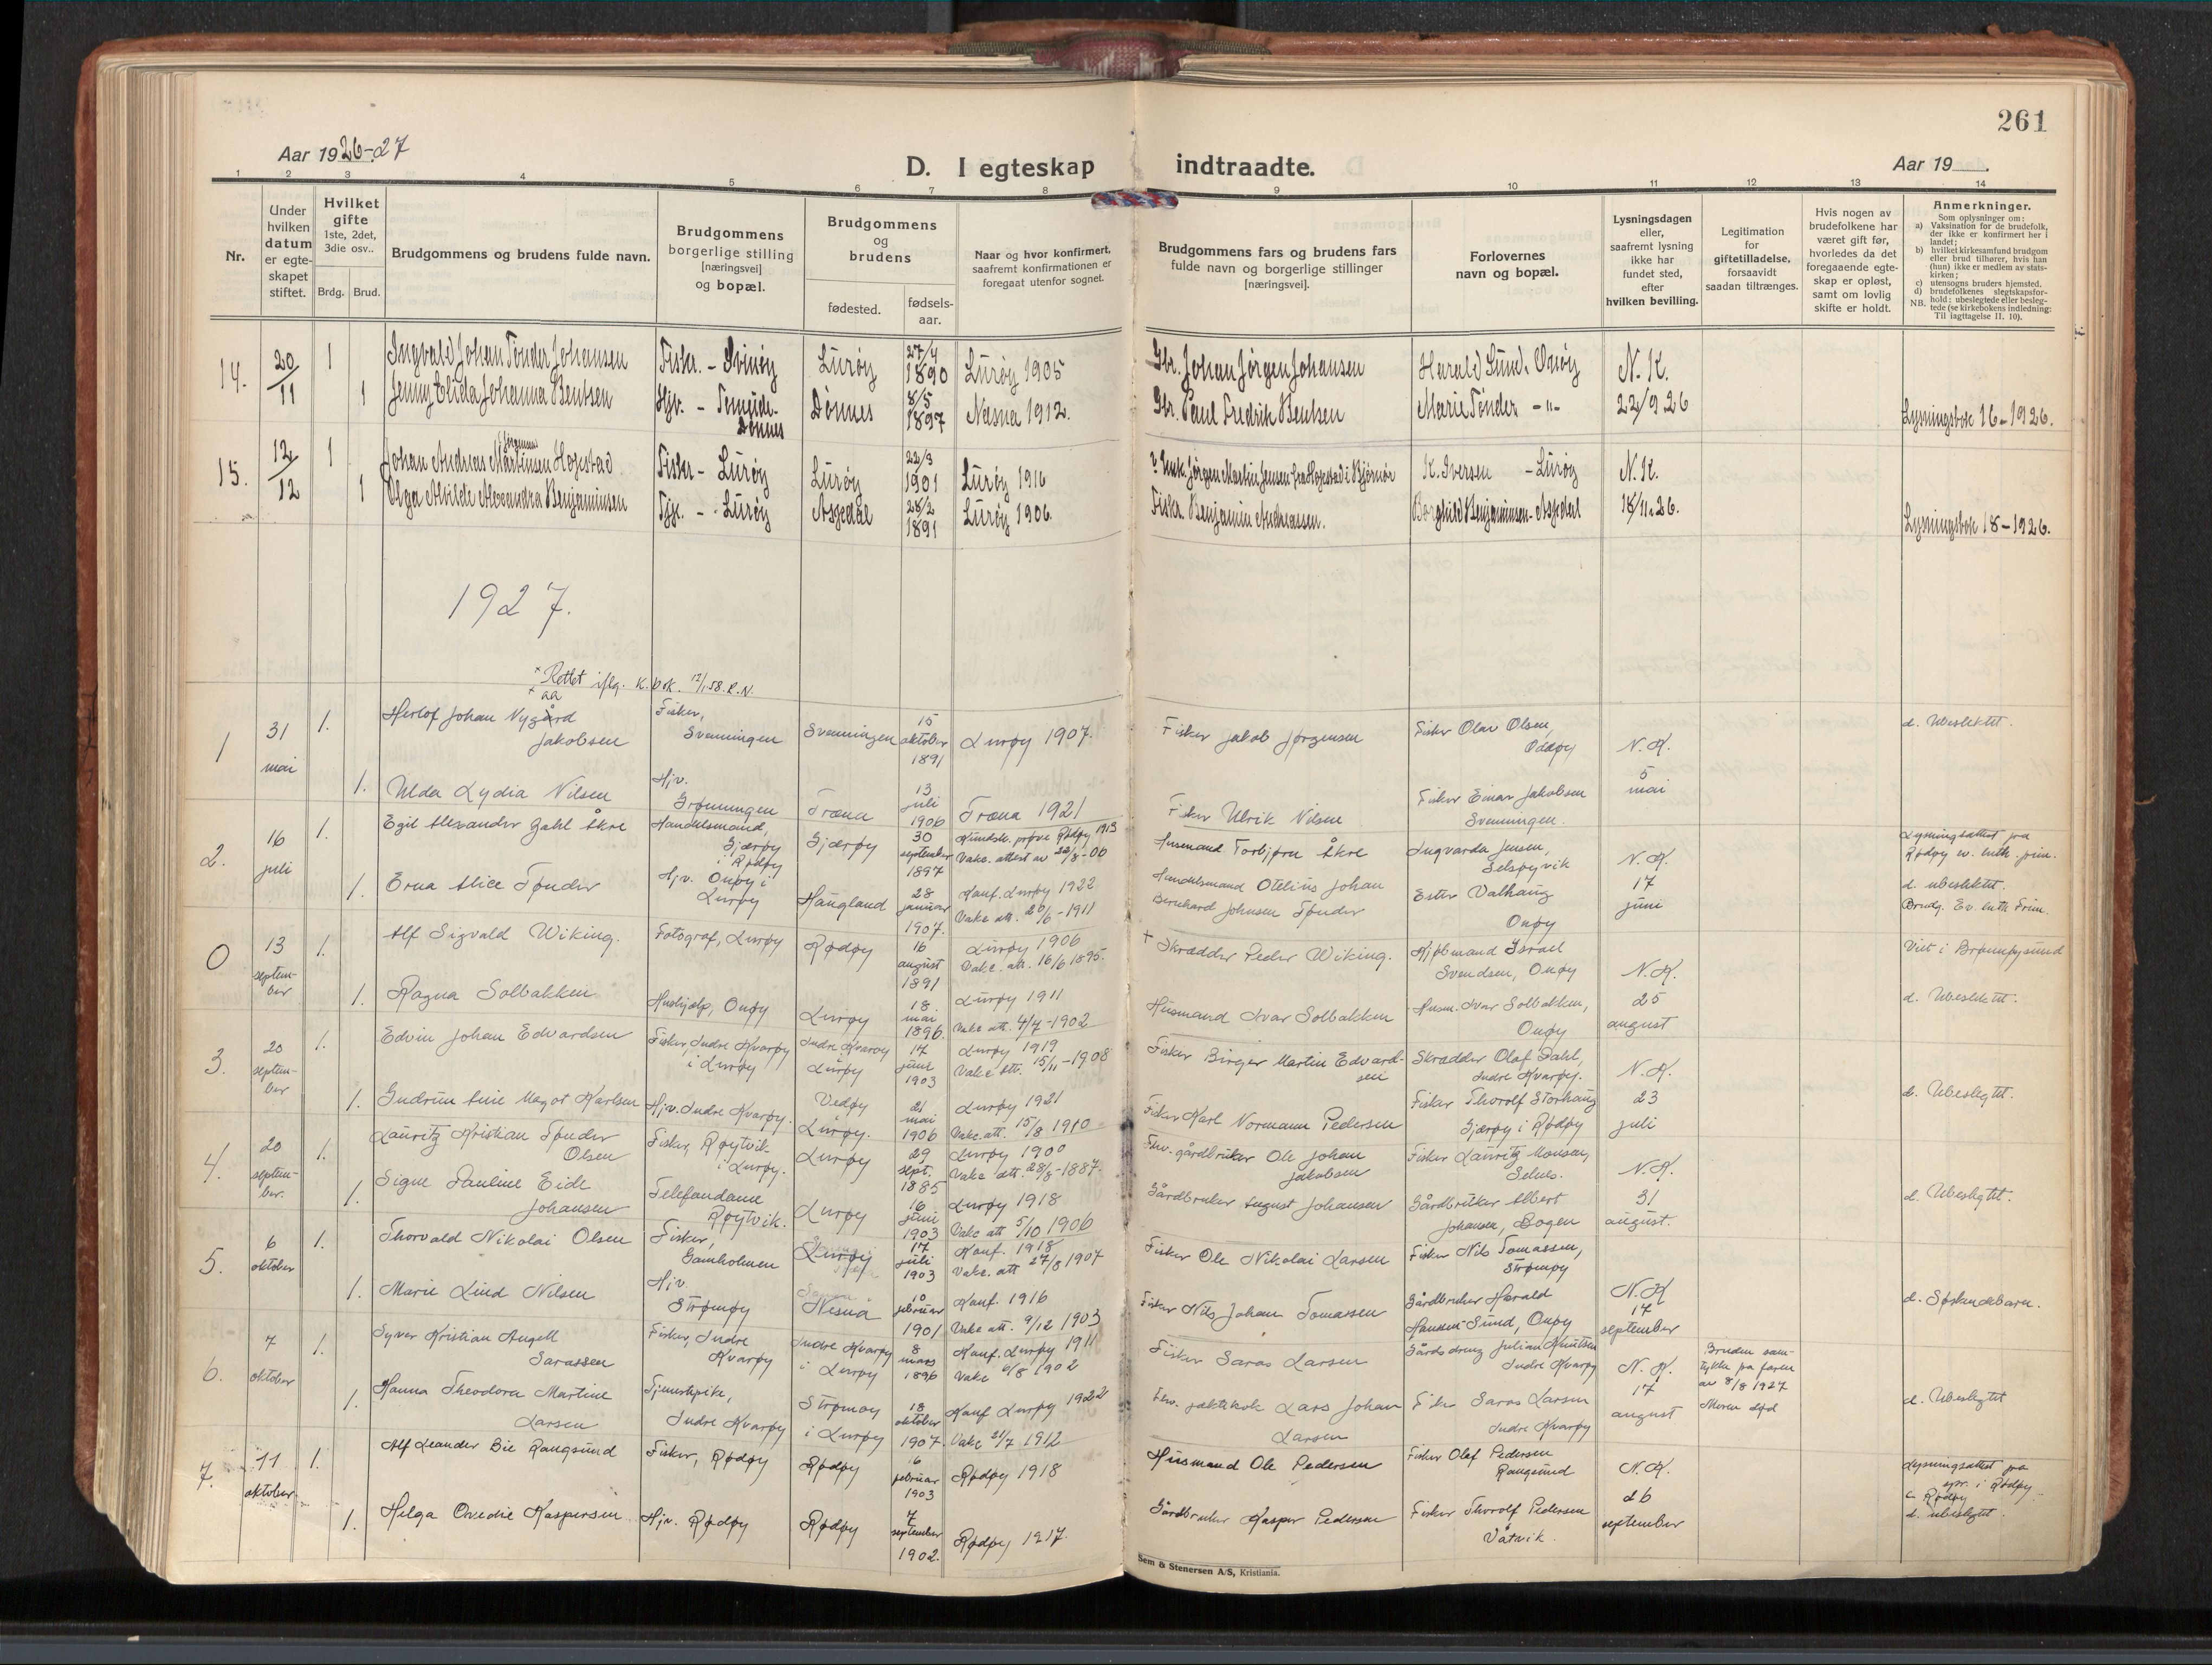 261
Aar 1926-27
D. I egteskap indtraadte.
Aar 19
1 2 3 4 5 6 7 8 9 10 11 12 13 14
Nr.
Under hvilken datum er egteskapet stiftet.
Hvilket gifte 1ste, 2det, 3die osv..
Brdg. Brud.
Brudgommens og brudens fulde navn.
Brudgommens borgerlige stilling [næringsvei] og bopæl.
Brudgommens og brudens
fødested.
fødselsaar.
Naar og hvor konfirmert, saafremt konfirmationen er foregaat utenfor sognet.
Brudgommens fars og brudens fars fulde navn og borgerlige stillinger [næringsvei].
Forlovernes navn og bopæl.
Lysningsdagen eller, saafremt lysning ikke har fundet sted, efter hvilken bevilling.
Legitimation for giftetilladelse, forsaavidt saadan tiltrænges.
Hvis nogen av brudefolkene har været gift før, hvorledes da det foregaaende egteskap er opløst, samt om lovlig skifte er holdt.
Anmerkninger.
Som oplysninger om:
a) Vaksination for de brudefolk, der ikke er konfirmert her i landet;
b) hvilket kirkesamfund brudgom eller brud tilhører, hvis han (hun) ikke er medlem av statskirken;
c) utensogns bruders hjemsted.
d) brudefolkenes slegtskapsforhold: ubeslegtede eller beslegtede (se kirkebokens indledning: Til Iagttagelse II, 10).
NB.
14. 20/11 1 Ingvald Johan Tønder Johansen Fiskr. - Svinøy Lurøy 27/4 1890 Lurøy 1905 Gbr. Johan Jørgen Johansen Harald Sund, Onøy N. K.
1 Jenny Elida Johanna Bentsen Hjv. - Dønnes Dønnes 8/5 1897 Nesna 1912. Gbr. Paul Fredrik Bentsen Marie Tønder -"- 22/9 26 Lysningsbok 16-1926.
15. 12/12 1 Johan Andreas Martinsen Hogstad Fiskr - Lurøy Lurøy 22/3 1901 Lurøy 1916 Jørgen Martin Jensen K. Iversen - Lurøy N. K.
1 Olga Alvilde Alexandra Benjaminsen Tjp. - Lurøy Asgedal 28/2 1891 Lurøy 1906. Fiskr. Benjamin Andreassen. Borghild Benjaminsen - Asgedal 18/11.26. Lysningsbok 18-1926.
1927.
× Rettet iflg. K.bok. 12/1 58. R.N.
× aa
1 31 mai 1. Herlof Johan Nygård Jakobsen Fisker, Svenningen Svenningen 15 oktober 1891 Lurøy 1907. Fisker Jakob Jørgensen Fisker Olav Olsen, N. K. d. Ubeslektet.
1. Ulda Lydia Nilsen Hjv. Grønningen Træna 13 juli 1906 Træna 1921 Fisker Ulrik Nilsen Fisker Einar Jakobsen Svenningen. 5 mai
2. 16 juli 1. Egil Alexander Zahl Åkre Handelsmand, Gjærøy i Rødøy Gjærøy 30 september 1897 Kundsk. prøve Rødøy 1913 Vakc. attest av 22/8-00 Husmand Torbjørn Åkre Ingvarda Jensen, Selsøyvik N. K. Lysningsattest fra Rødøy ev. luth. frim.
1. Erna Alice Tønder Hjv. Onøy i Lurøy Haugland 28 januar 1907. Konf. Lurøy 1922 Vakc att. 20/6-1911 Handelsmand Otelius Johan Bernhard Johnsen Tønder Ester Valhaug Onøy 17 juni d. ubeslektet. Brudg. Ev. luth Frim.
0 13 september 1. Alf Sigvald Wiking. Fotograf, Lurøy Rødøy 16 august 1891 Lurøy 1906 Vakc. att. 16/6 1895. + Skrædder Peder Wiking. Israel Svendsen, Onøy N. K. Viet i Brønnøysund
1. Ragna Solbakken Hushjelp, Onøy Lurøy 18. mai 1896. Lurøy 1911 Vakc att. 4/7-1902 Husmand Ivar Solbakken Husm. Ivar Solbakken, Onøy 25 august d. Ubeslektet.
3. 20 september 1. Edvin Johan Edvardsen Fisker, Indre Kvarøy i Lurøy Indre Kvarøy Lurøy 17 juni 1903 Lurøy 1919 Vakc att. 15/11-1908 Fisker Birger Martin Edvardsen Skrædder Olaf Dahl, Indre Kvarøy. N. K.
1. Gudrun Line Magot Karlsen Hjv. Indre Kvarøy. Vedøy Lurøy. 21 mai 1906 Lurøy 1921 Vakc. att. 15/8 1910 Fisker Karl Normann Pedersen Fisker Thorolf Storhaug Gjærøy i Rødøy 23 juli d. Ubeslegtet.
4. 20 september. 1. Lauritz Kristian Tønder Olsen Fisker, Røytvik i Lurøy. Lurøy 29 sept. 1885 Lurøy 1900 Vakc att. 28/8-1887. Fhv. gårdbruker Ole Johan Jakobsen Fisker Lauritz Monsen, Selnes. N. K.
1. Signe Pauline Eide Johansen Telefondame Røytvik. Lurøy 16 juni 1903 Lurøy 1918 Vakc att 5/10 1906 Gårdbruker August Johansen Gårdbruker Albert Johansen, Bogen 31 august. d. Ubeslegtet.
5. 6 oktober 1. Thorvald Nikolai Olsen Fisker, Gamholmen Lurøy 17 juli 1903 Konf. 1918 Vakc. att 27/8 1907 Fisker Ole Nikolai Larsen Fisker Nils Tomassen, Strømøy
1. Marie Lind Nilsen Hjv. Strømøy Nesna 10 februar 1901 Konf. 1916 Vakc att. 9/12 1903 Fisker Nils Johan Tomassen Gårdbruker Harald Hansen Sund, Onøy N. K 17 september d. Søskendebarn.
6. 7 oktober 1. Syver Kristian Angell Sarassen Fisker, Indre Kvarøy Indre Kvarøy i Lurøy 8 mars 1896 Konf. Lurøy 1911 Vakc 6/8 1902 Fisker Saras Larsen Gårdsdreng Julian Knutsen Indre Kvarøy N. K. Bruden samtykke fra faren av 8/8 1927 Moren død
1. Hanna Theodora Martine Larsen Tjenestpike, Indre Kvarøy Strømøy i Lurøy 18 oktober 1907. Konf Lurøy 1922 Vakc 21/7 1912 Lars Johan Larsen Saras Larsen Indre Kvarøy 17 august d. Ubeslegtet
7. 11 oktober 1. Alf Leander Bie Rangsund Fisker, Rødøy Rødøy 16 februar 1903 Rødøy 1918 Husmand Ole Pedersen Fisker Olaf Pedersen Rangsund N. K. Lysningsattest fra spr. i Rødøy c Rødøy
1. Helga Ovedie Kaspersen Hjv. Rødøy Rødøy 7 september 1902. Rødøy 1917. Gårdbruker Kasper Pedersen Fisker Thorolf Pedersen Våtvik. 26 september d. ubeslegtet.
Sem & Stenersen A/S, Kristiania.